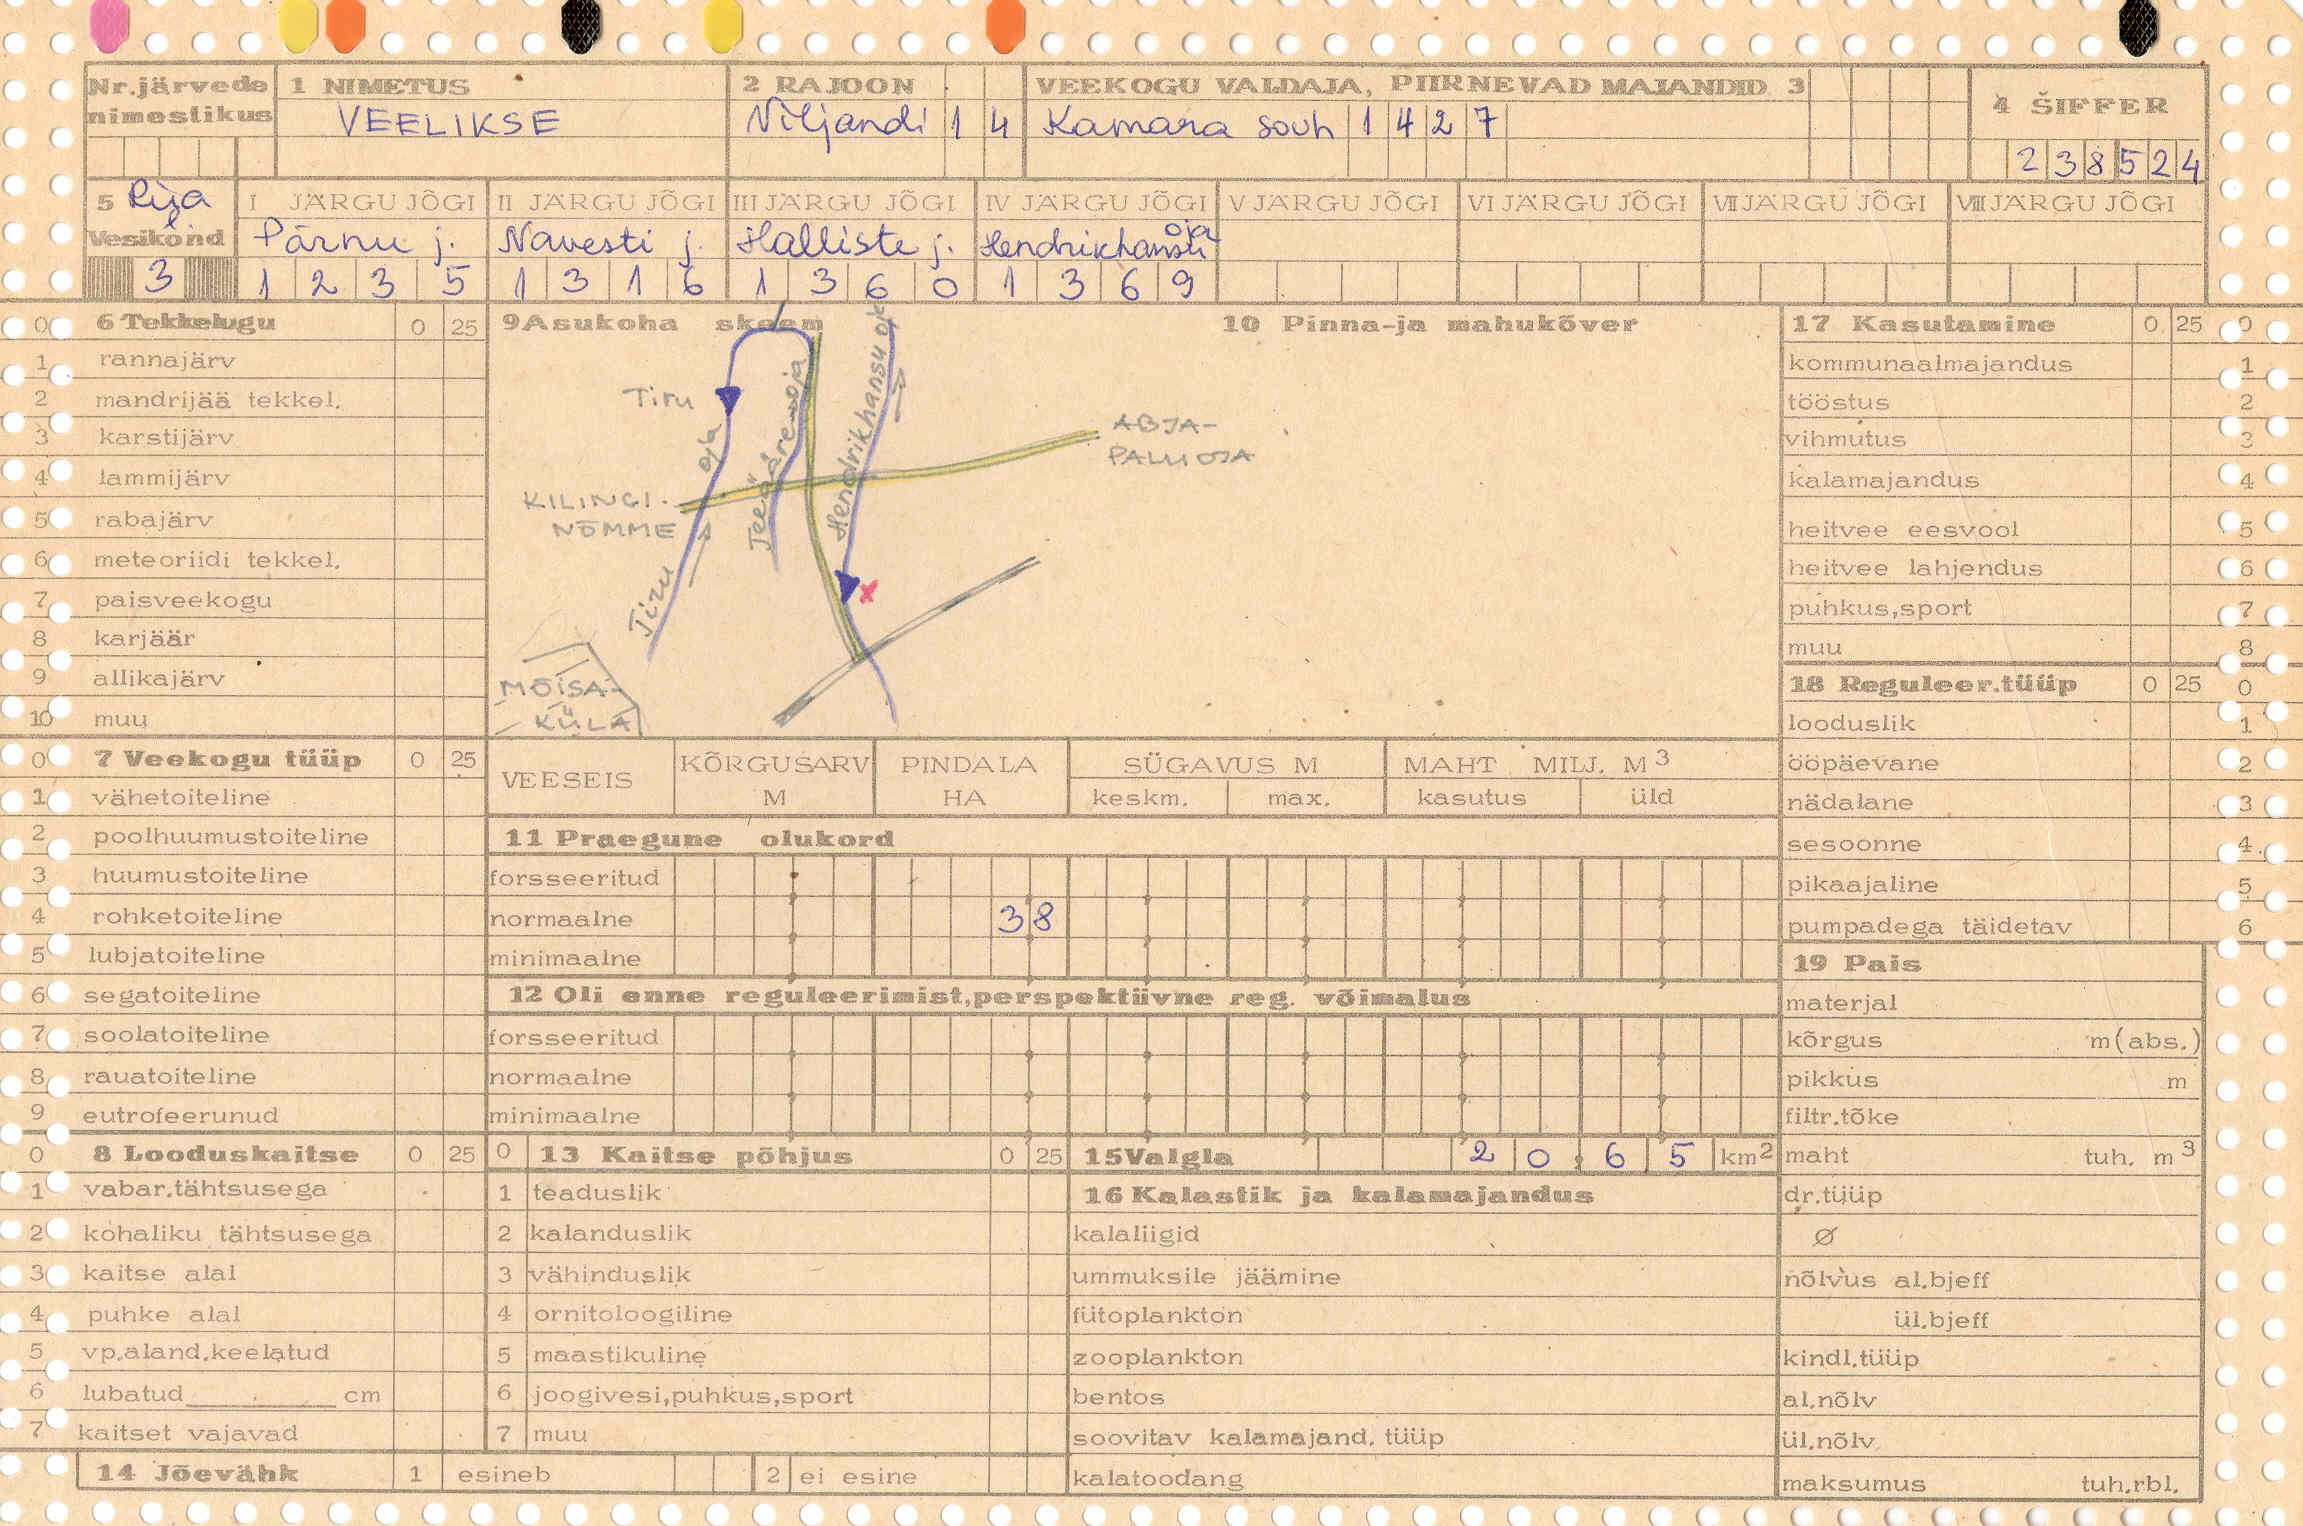 Nr.järvede nimestikus
1 NIMETUS
VEELIKSE
2 RAJOON
Viljandi 1 4
VEEKOGU VALDAJA, PIIRNEVAD MAJANDID 3
Kamara sovh 1 4 2 7
4 ŠIFFER
2 3 8 5 2 4
5 Rija l.
Vesikond
3
I JÄRGU JÕGI
Pärnu j.
1 2 3 5
II JÄRGU JÕGI
Navesti j.
1 3 1 6
III JÄRGU JÕGI
Halliste j.
1 3 6 0
IV JÄRGU JÕGI
Hendrikhansu oja
1 3 6 9
V JÄRGU JÕGI
VI JÄRGU JÕGI
VII JÄRGU JÕGI
VIII JÄRGU JÕGI
0 6 Tekkelugu 0 25
1 rannajärv
2 mandrijää tekkel.
3 karstijärv
4 lammijärv
5 rabajärv
6 meteoriidi tekkel.
7 paisveekogu
8 karjäär
9 allikajärv
10 muu
0 7 Veekogu tüüp 0 25
1 vähetoiteline
2 poolhuumustoiteline
3 huumustoiteline
4 rohketoiteline
5 lubjatoiteline
6 segatoiteline
7 soolatoiteline
8 rauatoiteline
9 eutrofeerunud
0 8 Looduskaitse 0 25
1 vabar.tähtsusega
2 kohaliku tähtsusega
3 kaitse alal
4 puhke alal
5 vp.aland.keelatud
6 lubatud cm
7 kaitset vajavad
14 Jõevähk 1 esineb 2 ei esine
9 Asukoha skeem
10 Pinna-ja mahukõver
Tiru
Tiru oja
Teeääre oja
Hendrikhansu oja
ABJA-
PALUOJA
KILINGI-
NÕMME
MÕISA-
KÜLA
VEESEIS
KÕRGUSARV M
PINDALA HA
SÜGAVUS M
keskm. max.
MAHT MILJ. M3
kasutus üld
11 Praegune olukord
forsseeritud
normaalne 38
minimaalne
12 Oli enne reguleerimist,perspektiivne reg. võimalus
forsseeritud
normaalne
minimaalne
0 13 Kaitse põhjus 0 25
1 teaduslik
2 kalanduslik
3 vähinduslik
4 ornitoloogiline
5 maastikuline
6 joogivesi,puhkus,sport
7 muu
15 Valgla 2 0 . 6 5 km2
16 Kalastik ja kalamajandus
kalaliigid
ummuksile jäämine
fütoplankton
zooplankton
bentos
soovitav kalamajand. tüüp
kalatoodang
17 Kasutamine 0 25 0
kommunaalmajandus 1
tööstus 2
vihmutus 3
kalamajandus 4
heitvee eesvool 5
heitvee lahjendus 6
puhkus,sport 7
muu 8
18 Reguleer.tüüp 0 25 0
looduslik 1
ööpäevane 2
nädalane 3
sesoonne 4
pikaajaline 5
pumpadega täidetav 6
19 Pais
materjal
kõrgus m(abs.)
pikkus m
filtr.tõke
maht tuh. m3
dr.tüüp
Ø
nõlvus al.bjeff
ül.bjeff
kindl.tüüp
al.nõlv
ül.nõlv
maksumus tuh.rbl.